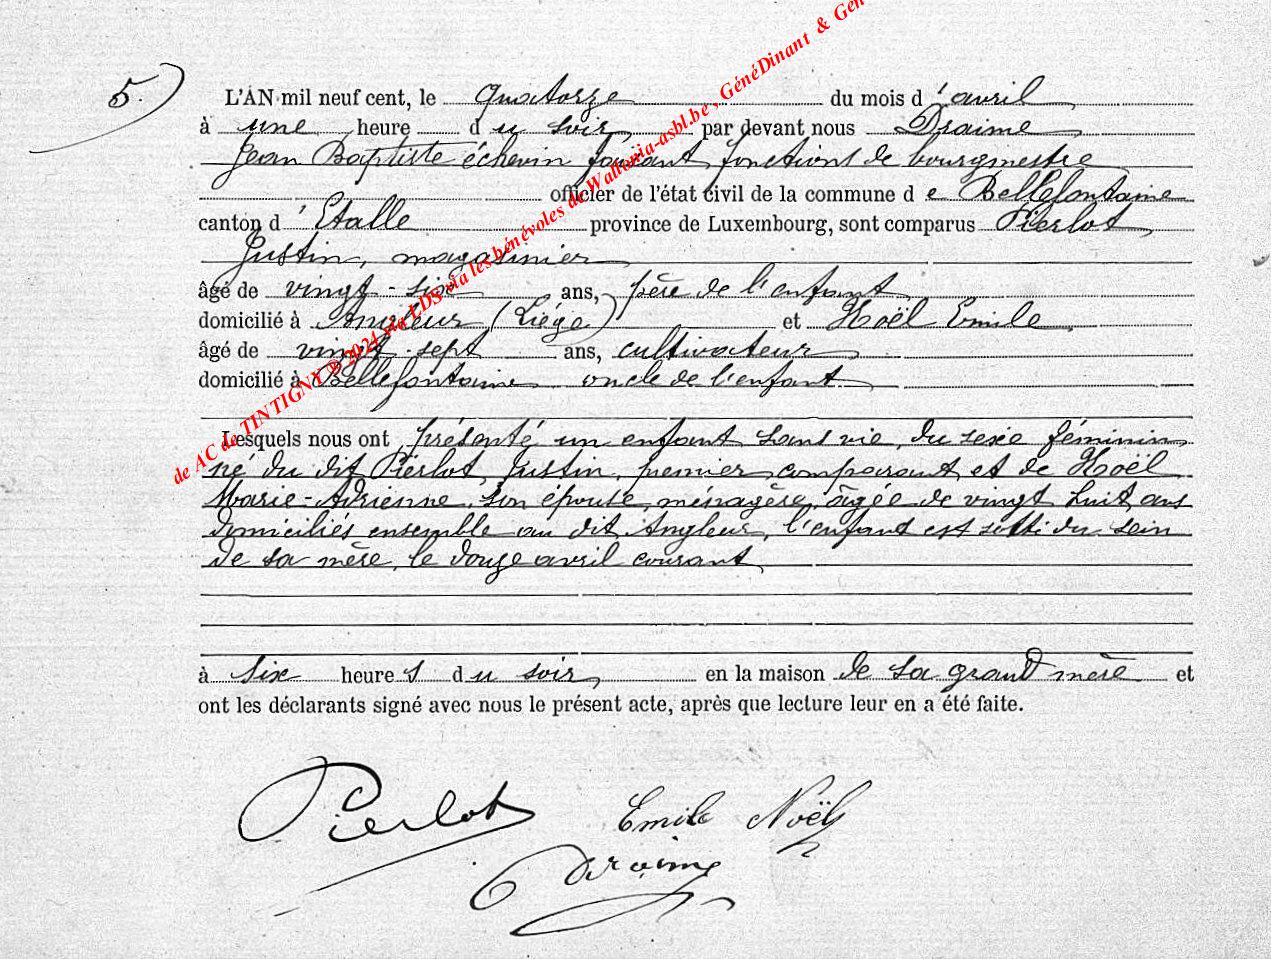 5.)
L'AN mil neuf cent, le quatorze du mois d'avril
à une heure du soir, par devant nous Draime
Jean Baptiste échevin faisant fonctions de bourgmestre
officier de l'état civil de la commune de Bellefontaine
canton d'Etalle province de Luxembourg, sont comparus Pierlot
Justin, magasinier
âgé de vingt-six ans, père de l'enfant
domicilié à Angleur (Liége) et Noël Emile
âgé de vingt-sept ans, cultivateur
domicilié à Bellefontaine oncle de l'enfant
Lesquels nous ont présenté un enfant sans vie, du sexe féminin
né du dit Pierlot, Justin, premier comparant et de Noël
Marie-Adrienne, son épouse, ménagère, âgée de vingt huit ans
domiciliés ensemble au dit Angleur, l'enfant est sorti du sein
de sa mère, le douze avril courant,
à six heures du soir, en la maison de sa grand mère et
ont les déclarants signé avec nous le présent acte, après que lecture leur en a été faite.
Pierlot Emile Noël
Draime
de AC de TINTIGNY @ 2024 via LDS via les bénévoles de Wallonia-asbl.be, GénéDinant & Gén